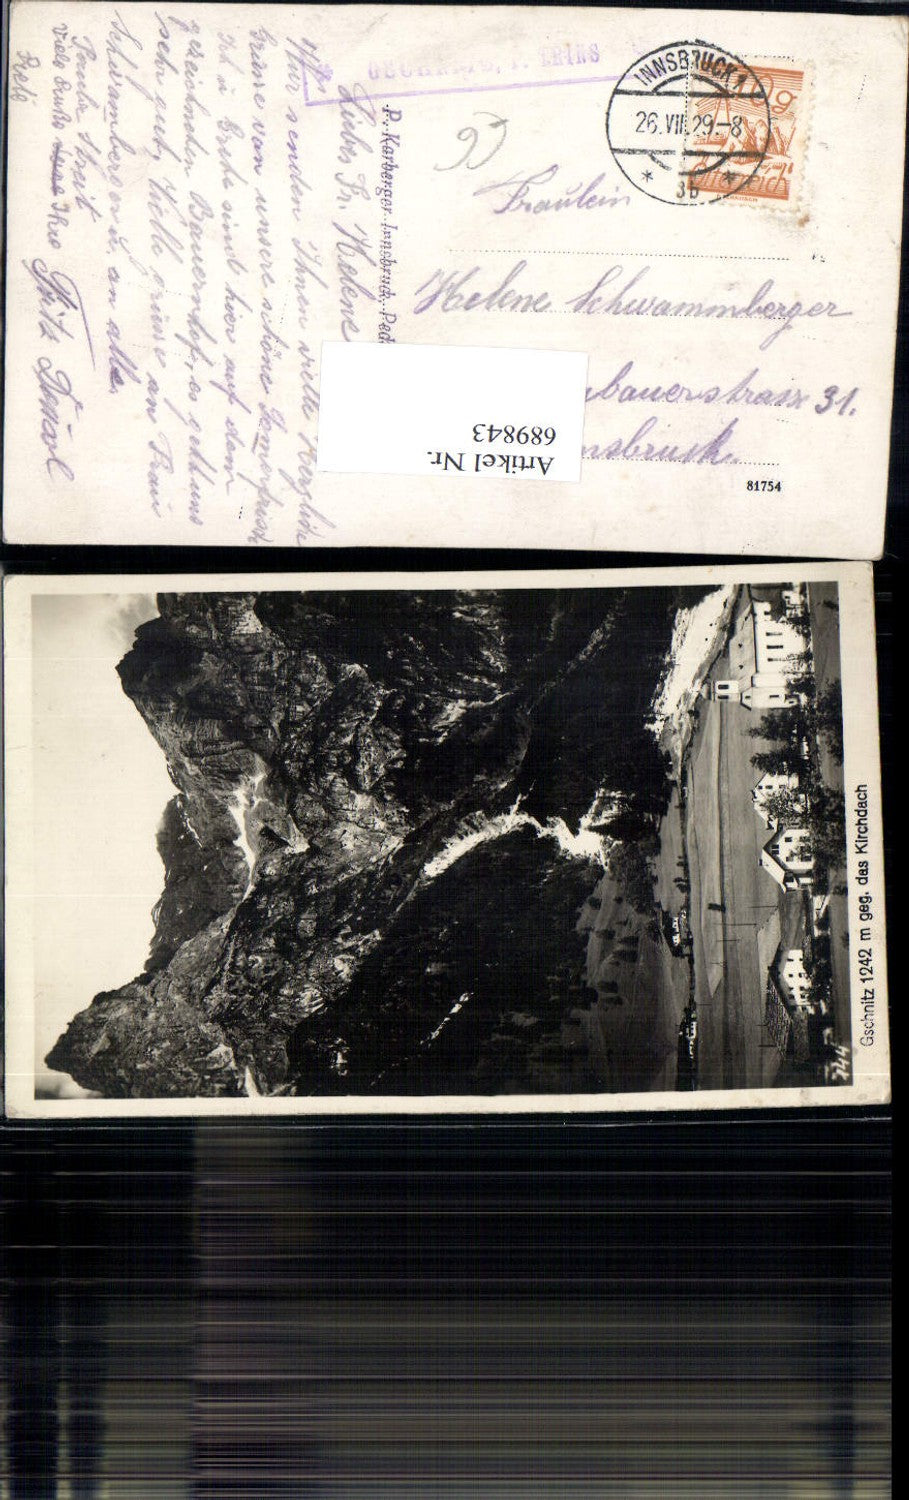 GSCHNITZ, P. TRINS
INNSBRUCK 1
26.VII.29.-8
* 3b *
Österreich
Fräulein
Helene Schwammberger
bauerstrasse 31.
nsbruck.
81754
P. Karberger Innsbruck-Pad
Artikel Nr.
689843
Liebe Fr. Helene
Wir senden Ihnen viele herzliche
Grüsse von unsere schöne Sommerfrisch
Ich u. Grete sind hier auf dem
gezeichneten Bauernhof, es geht uns
sehr gut, Wolle grüsse an Frau
Schwamberger u. an alle.
Fritz
viele Grüsse Ihre
Gschnitz 1242 m geg. das Kirchdach
744